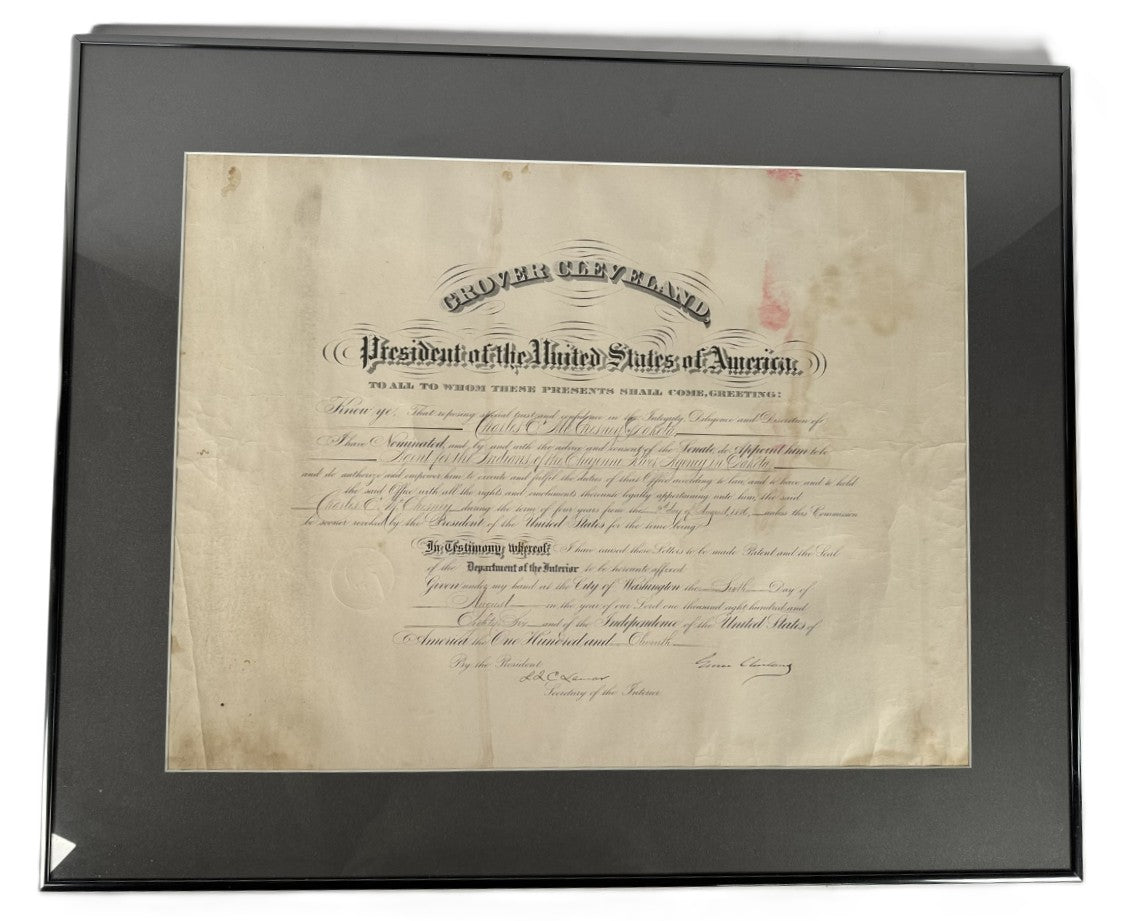 GROVER CLEVELAND,
President of the United States of America.
TO ALL TO WHOM THESE PRESENTS SHALL COME, GREETING:
Know ye, That reposing special trust and confidence in the Integrity, Diligence and Discretion of
Charles E. McChesney, Dakota
I have Nominated, and by and with the advice and consent of the Senate do Appoint him to be
Agent for the Indians of the Cheyenne River Agency in Dakota
and do authorize and empower him to execute and fulfil the duties of that Office according to law and to have and to hold
the said Office with all the rights and emoluments thereunto legally appertaining unto him, the said
Charles E. McChesney during the term of four years from the day of August, 1886, unless this Commission
be sooner revoked by the President of the United States for the time being.
In Testimony whereof I have caused these Letters to be made Patent and the Seal
of the Department of the Interior to be hereunto affixed
Given under my hand at the City of Washington the Sixth Day of
August in the year of our Lord one thousand eight hundred and
Eighty Six and of the Independence of the United States of
America the One Hundred and Eleventh
By the President Grover Cleveland
L Q C Lamar
Secretary of the Interior